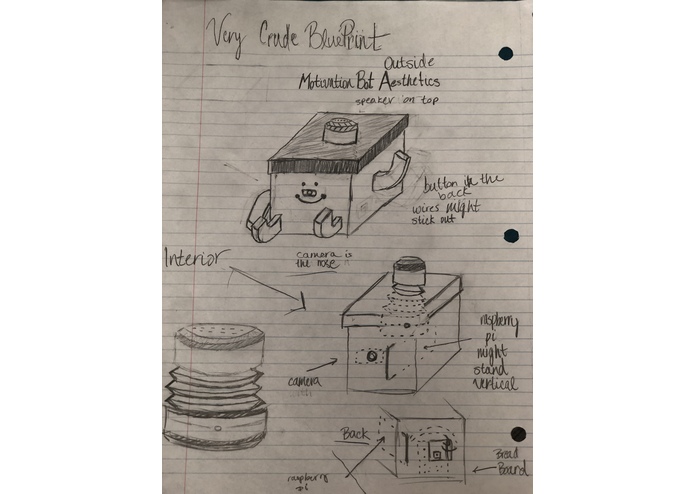 Very Crude BluePrint
Outside
Motivation Bot Aesthetics
speaker on top
button in the
back
wires might
stick out
camera is
the nose
Interior
raspberry
pi
might
stand
vertical
camera
Back
Bread
Board
raspberry
pi